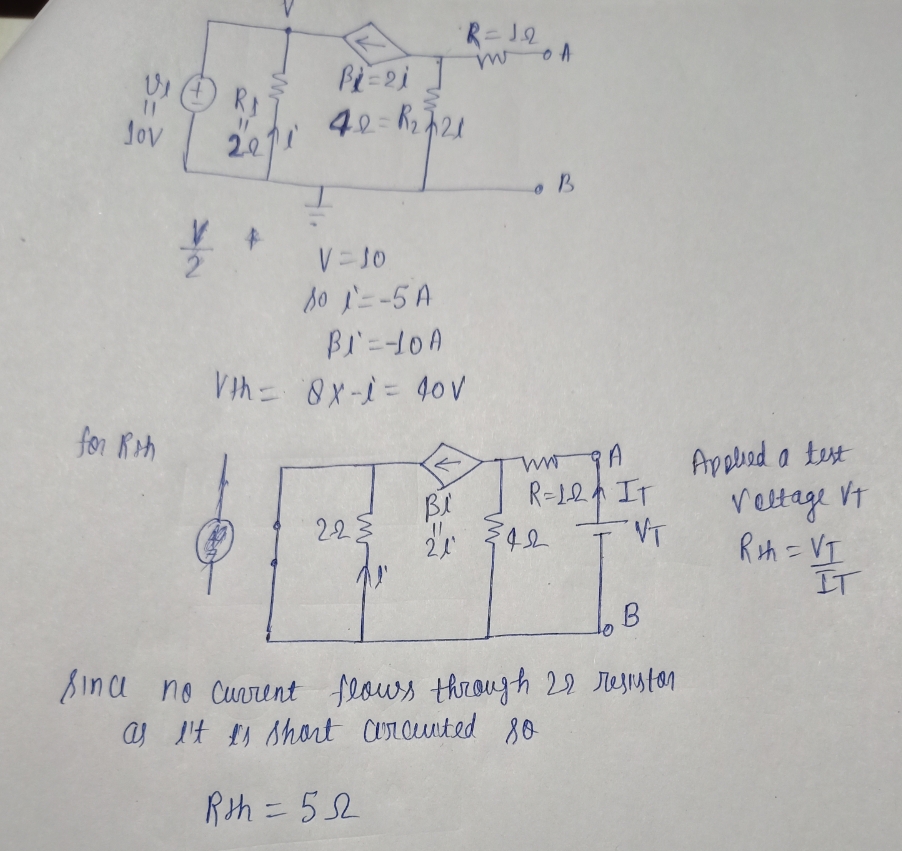 V
R = 1Ω
A
V1 = 10V
R1 = 2Ω
i
Bi = 2i
4Ω = R2
2i
B
V/2 +
V = 10
so i = -5 A
Bi = -10 A
Vth = 8 x -i = 40V
for Rth
A
R = 1Ω
IT
2Ω
Bi = 2i
4Ω
VT
i
B
Applied a test
voltage VT
Rth = VT/IT
Since no current flows through 2Ω resistor
as it is short circuited so
Rth = 5 Ω